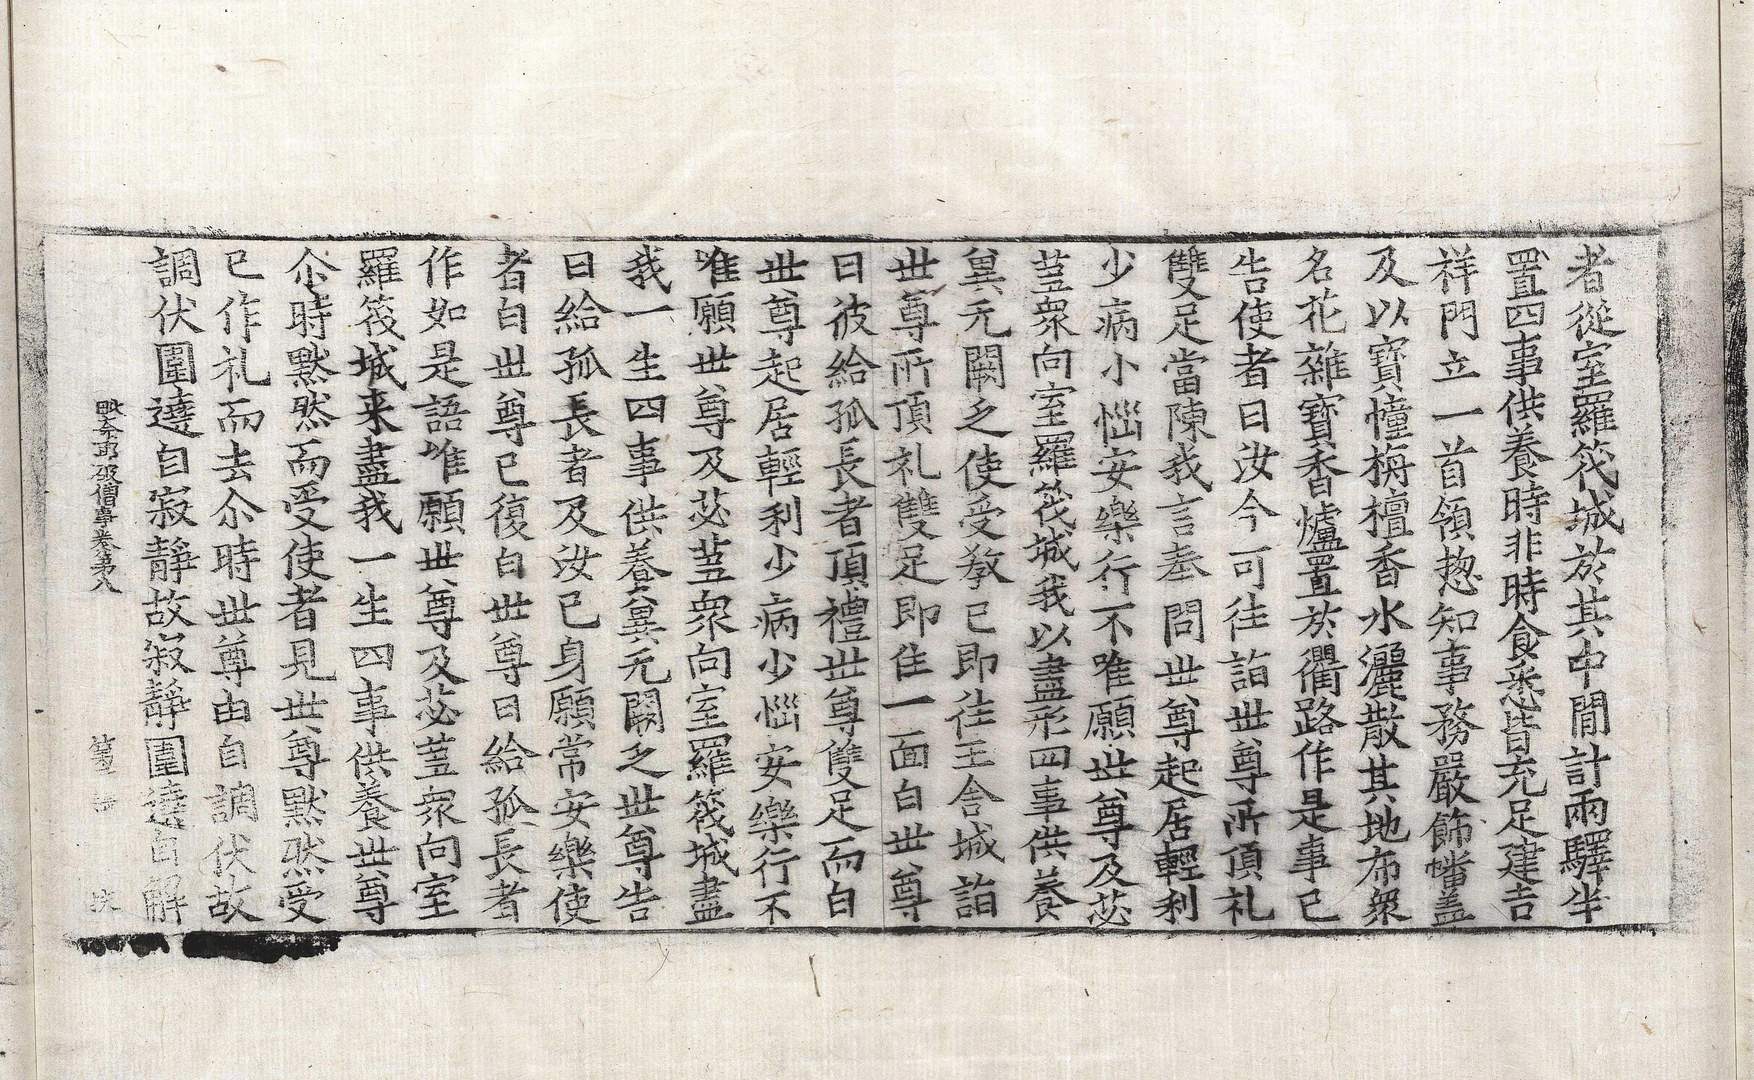 者從室羅筏城於其中間計兩驛半
置四事供養時非時食悉皆充足建吉
祥門立一首領惣知事務嚴飾幡盖
及以寶幢栴檀香水灑散其地布衆
名花雜寶香爐置於衢路作是事已
告使者曰汝今可往詣世尊所頂礼
雙足當陳我言奉問世尊起居輕利
少病小惱安樂行不唯願世尊及苾
蒭衆向室羅筏城我以盡形四事供養
異无闕乏使受教已即往王舍城詣
世尊所頂礼雙足即住一面白世尊
曰彼給孤長者頂禮世尊雙足而白
世尊起居輕利少病少惱安樂行不
唯願世尊及苾蒭衆向室羅筏城盡
我一生四事供養兾无闕乏世尊告
曰給孤長者及汝已身願常安樂使
者白世尊已復白世尊曰給孤長者
作如是語唯願世尊及苾蒭衆向室
羅筏城来盡我一生四事供養世尊
尒時默然而受使者見世尊默然受
已作礼而去尒時世尊由自調伏故
調伏圍遶自寂靜故寂靜圍遶自解
毗奈耶破僧事卷第八